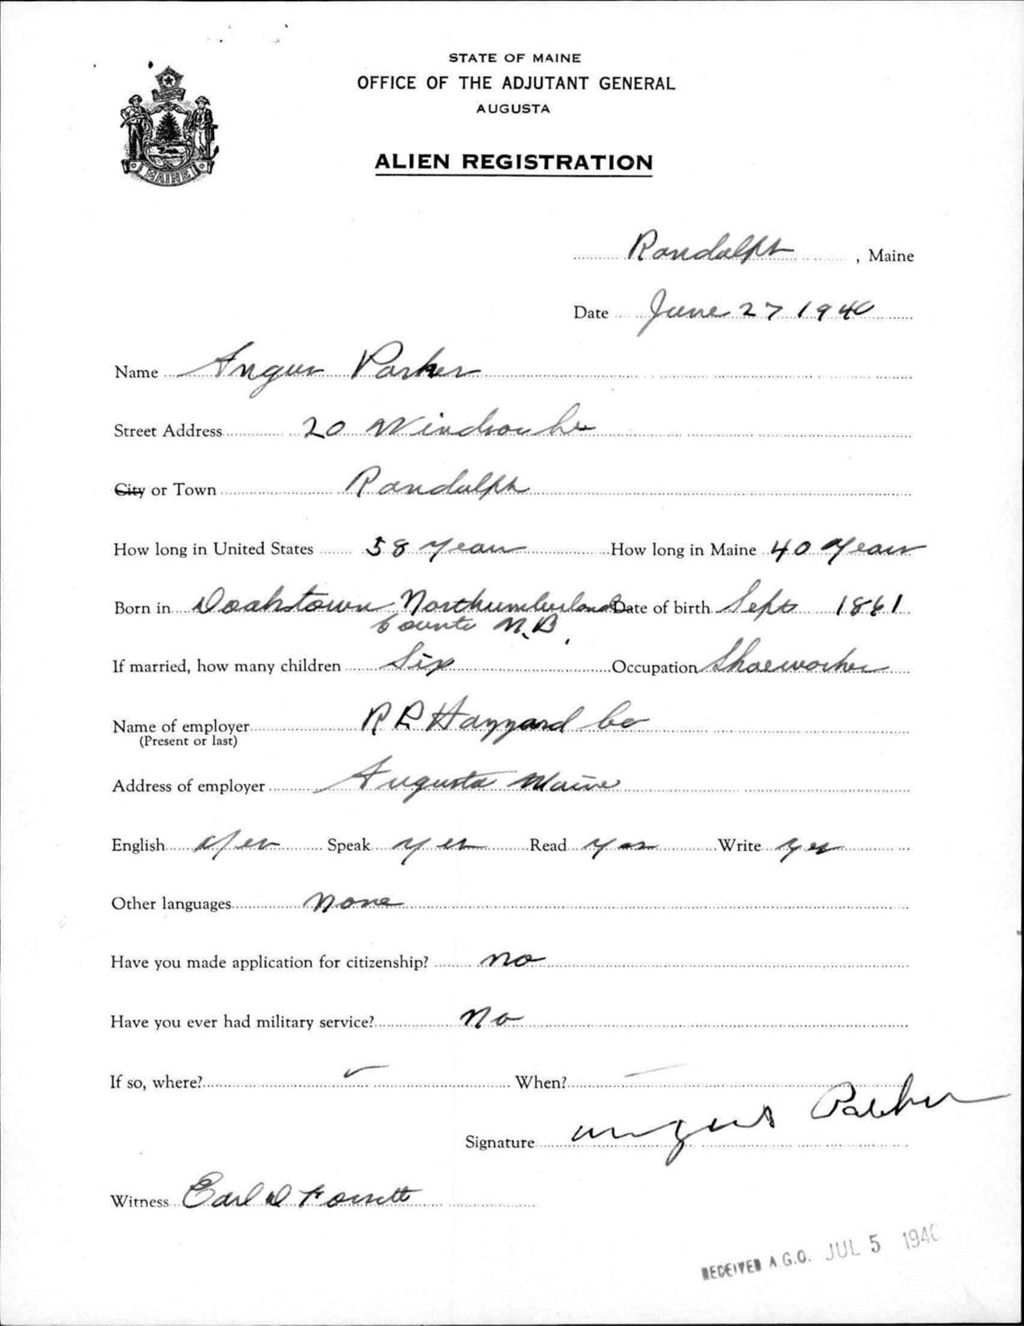 STATE OF MAINE
OFFICE OF THE ADJUTANT GENERAL
AUGUSTA
ALIEN REGISTRATION
MAINE
Randolph, Maine
Date June 27 1940
Name Angus Parker
Street Address 20 Windsor
City or Town Randolph
How long in United States 58 years How long in Maine 40 years
Born in Doaktown Northumberland Date of birth Sept 1861
County N.B.
If married, how many children Six Occupation Shoeworker
Name of employer R P Hazzard Co
(Present or last)
Address of employer Augusta Maine
English yes Speak yes Read yes Write yes
Other languages None
Have you made application for citizenship? no
Have you ever had military service? No
If so, where? When?
Signature Angus Parker
Witness Earl D
RECEIVED A.G.O. JUL 5 1940